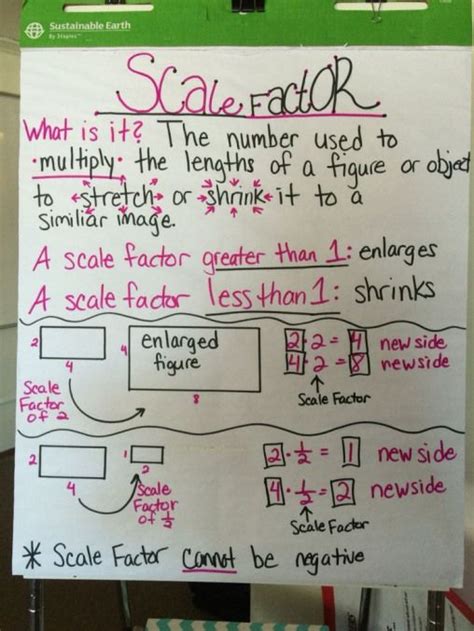 Sustainable Earth
By Staples™
SCale FactOR
What is it? The number used to
•multiply• the lengths of a figure or object
to stretch or shrink it to a
similiar image.
A scale factor greater than 1: enlarges
A scale factor less than 1: shrinks
2
4
Scale
Factor
of 2
4
enlarged
figure
8
2 · 2 = 4 new side
4 · 2 = 8 new side
Scale Factor
2
4
1
2
Scale
Factor
of 1/2
2 · 1/2 = 1 new side
4 · 1/2 = 2 new side
Scale Factor
* Scale Factor cannot be negative